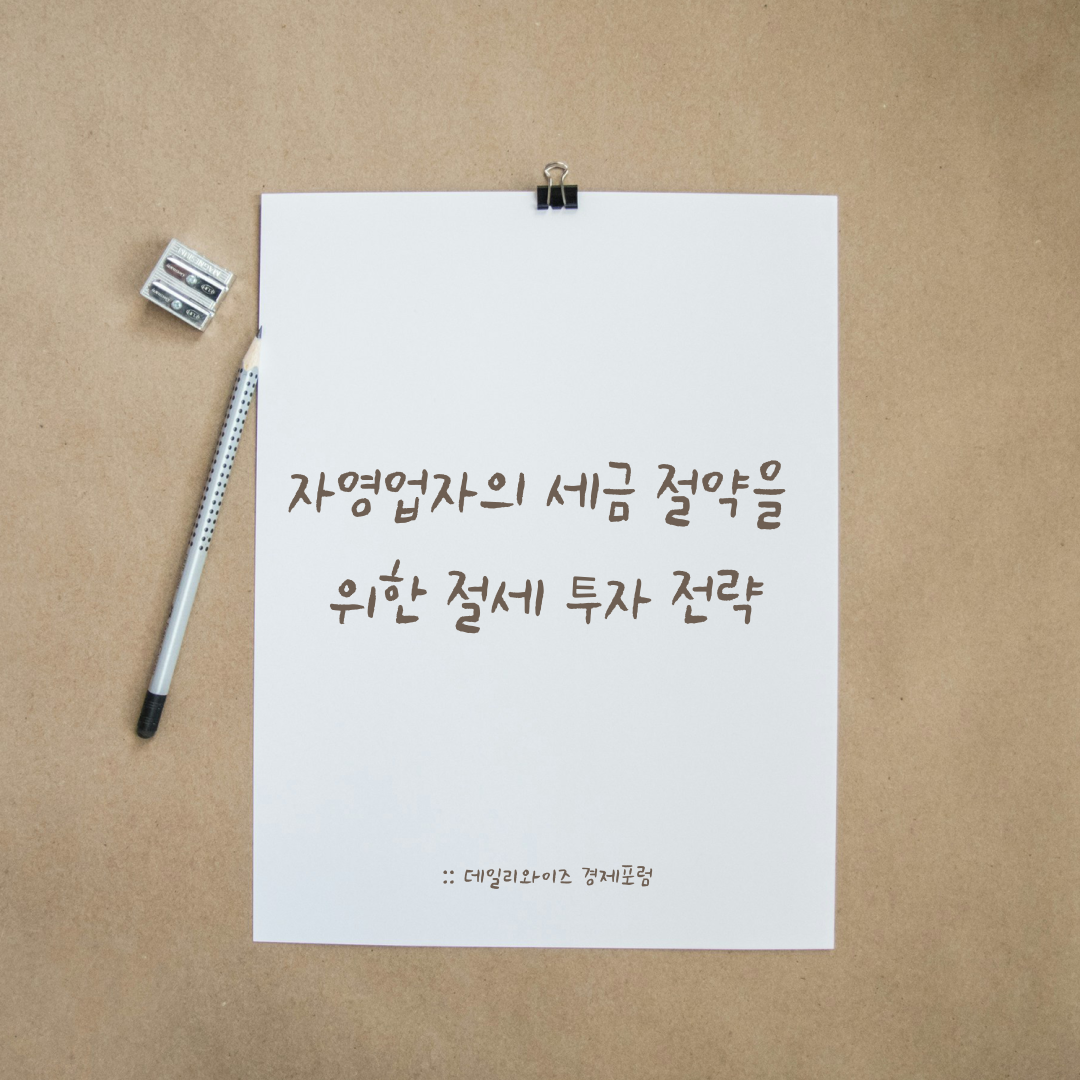 자영업자의 세금 절약을
위한 절세 투자 전략
:: 데일리와이즈 경제포럼